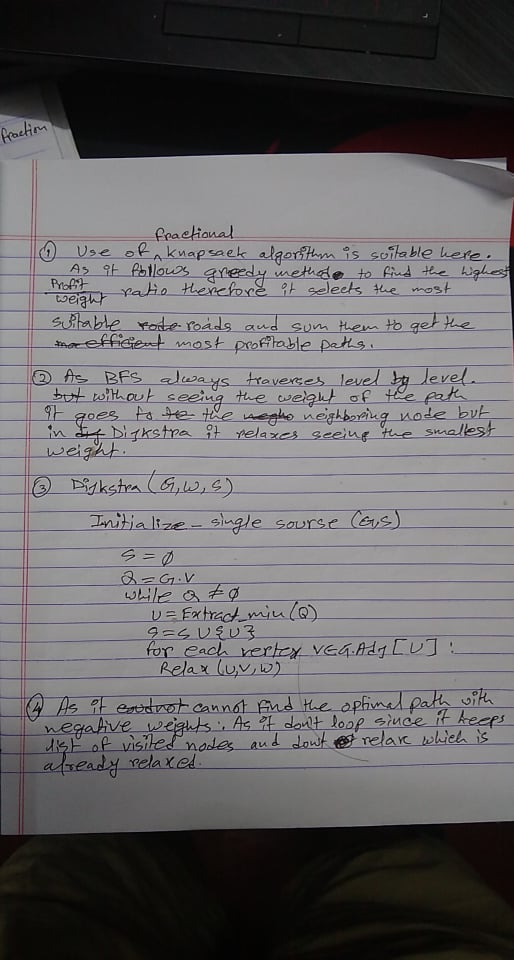 fraction
fractional
① Use of ^ knapsack algorithm is suitable here.
As it follows greedy method to find the highest
Profit
weight ratio therefore it selects the most
suitable rode roads and sum them to get the
efficient most profitable paths.
② As BFS always traverses level by level.
but without seeing the weight of the path
it goes to the the neighboring node but
in Dijkstra it relaxes seeing the smallest
weight.
③ Dijkstra (G,W,S)
Initialize - single sourse (G,S)
S = ∅
Q = G.V
while Q ≠ ∅
U = Extract_min(Q)
S = S U {U}
for each vertex V∈G.Adj [U] :
Relax (U,V,W)
④ As it cannot find the optimal path with
negative weights. As it don't loop since it keeps
list of visited nodes and dont relax which is
already relaxed.